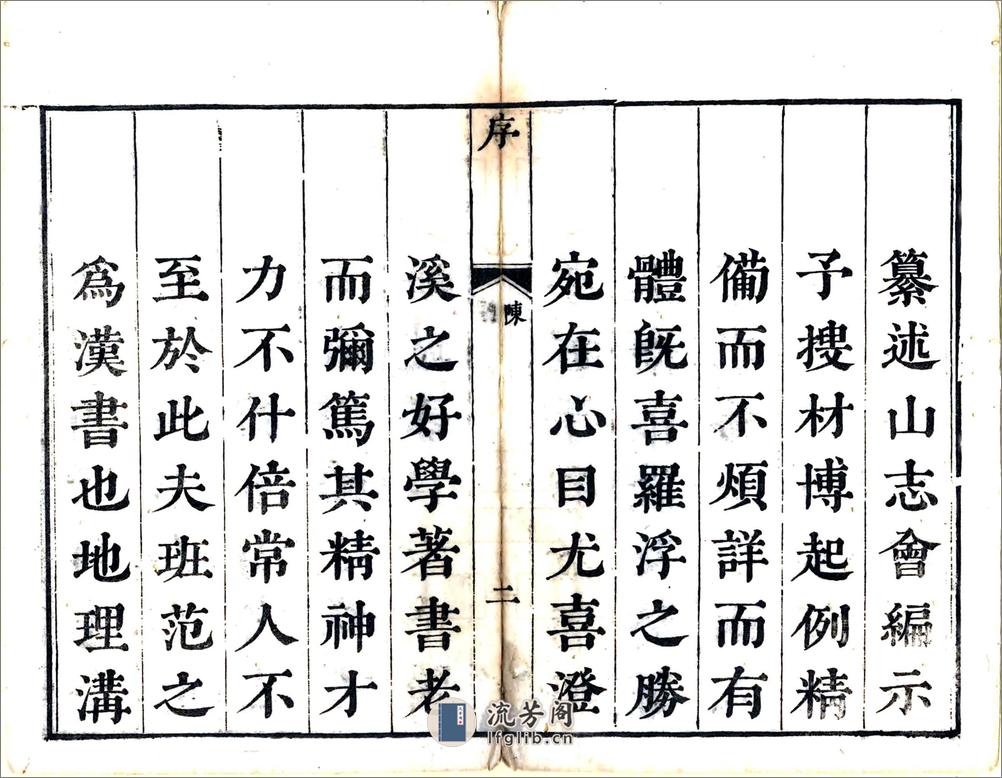 纂述山志會編示
予搜材博起例精
備而不煩詳而有
體既喜羅浮之勝
宛在心目尤喜澄
序
陳
二
溪之好學著書老
而彌篤其精神才
力不什倍常人不
至於此夫班范之
爲漢書也地理溝
流芳阁
lfglib.cn